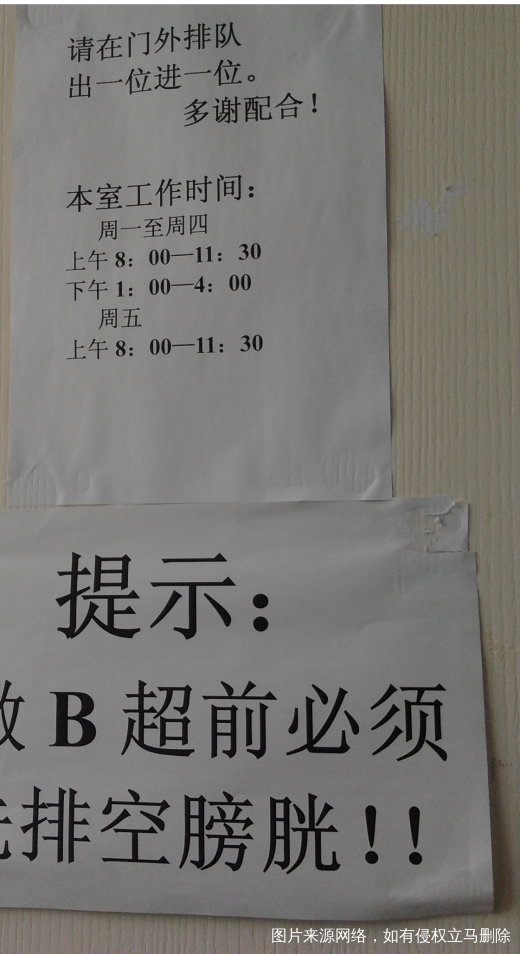 请在门外排队
出一位进一位。
多谢配合！
本室工作时间：
周一至周四
上午 8：00—11：30
下午 1：00—4：00
周五
上午 8：00—11：30
提示：
做 B 超前必须
先排空膀胱！！
图片来源网络，如有侵权立马删除